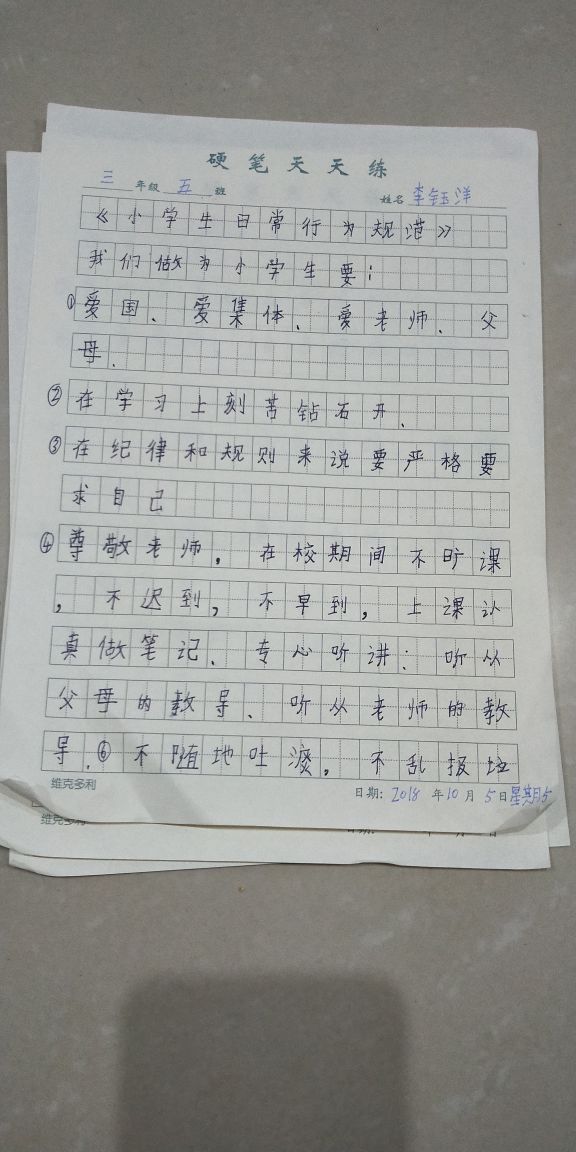 硬笔天天练
三年级 五 班 姓名 李钰洋
《小学生日常行为规范》
我们做为小学生要：
①爱国、爱集体、爱老师、父
母.
②在学习上刻苦钻石开、
③在纪律和规则来说要严格要
求自己
④尊敬老师，在校期间不旷课
，不迟到，不早到，上课认
真做笔记、专心听讲：听从
父母的教导、听从老师的教
导.⑥不随地吐痰，不乱扔垃
维克多利 日期: 2018 年 10 月 5 日星期5
维克多利 日期: